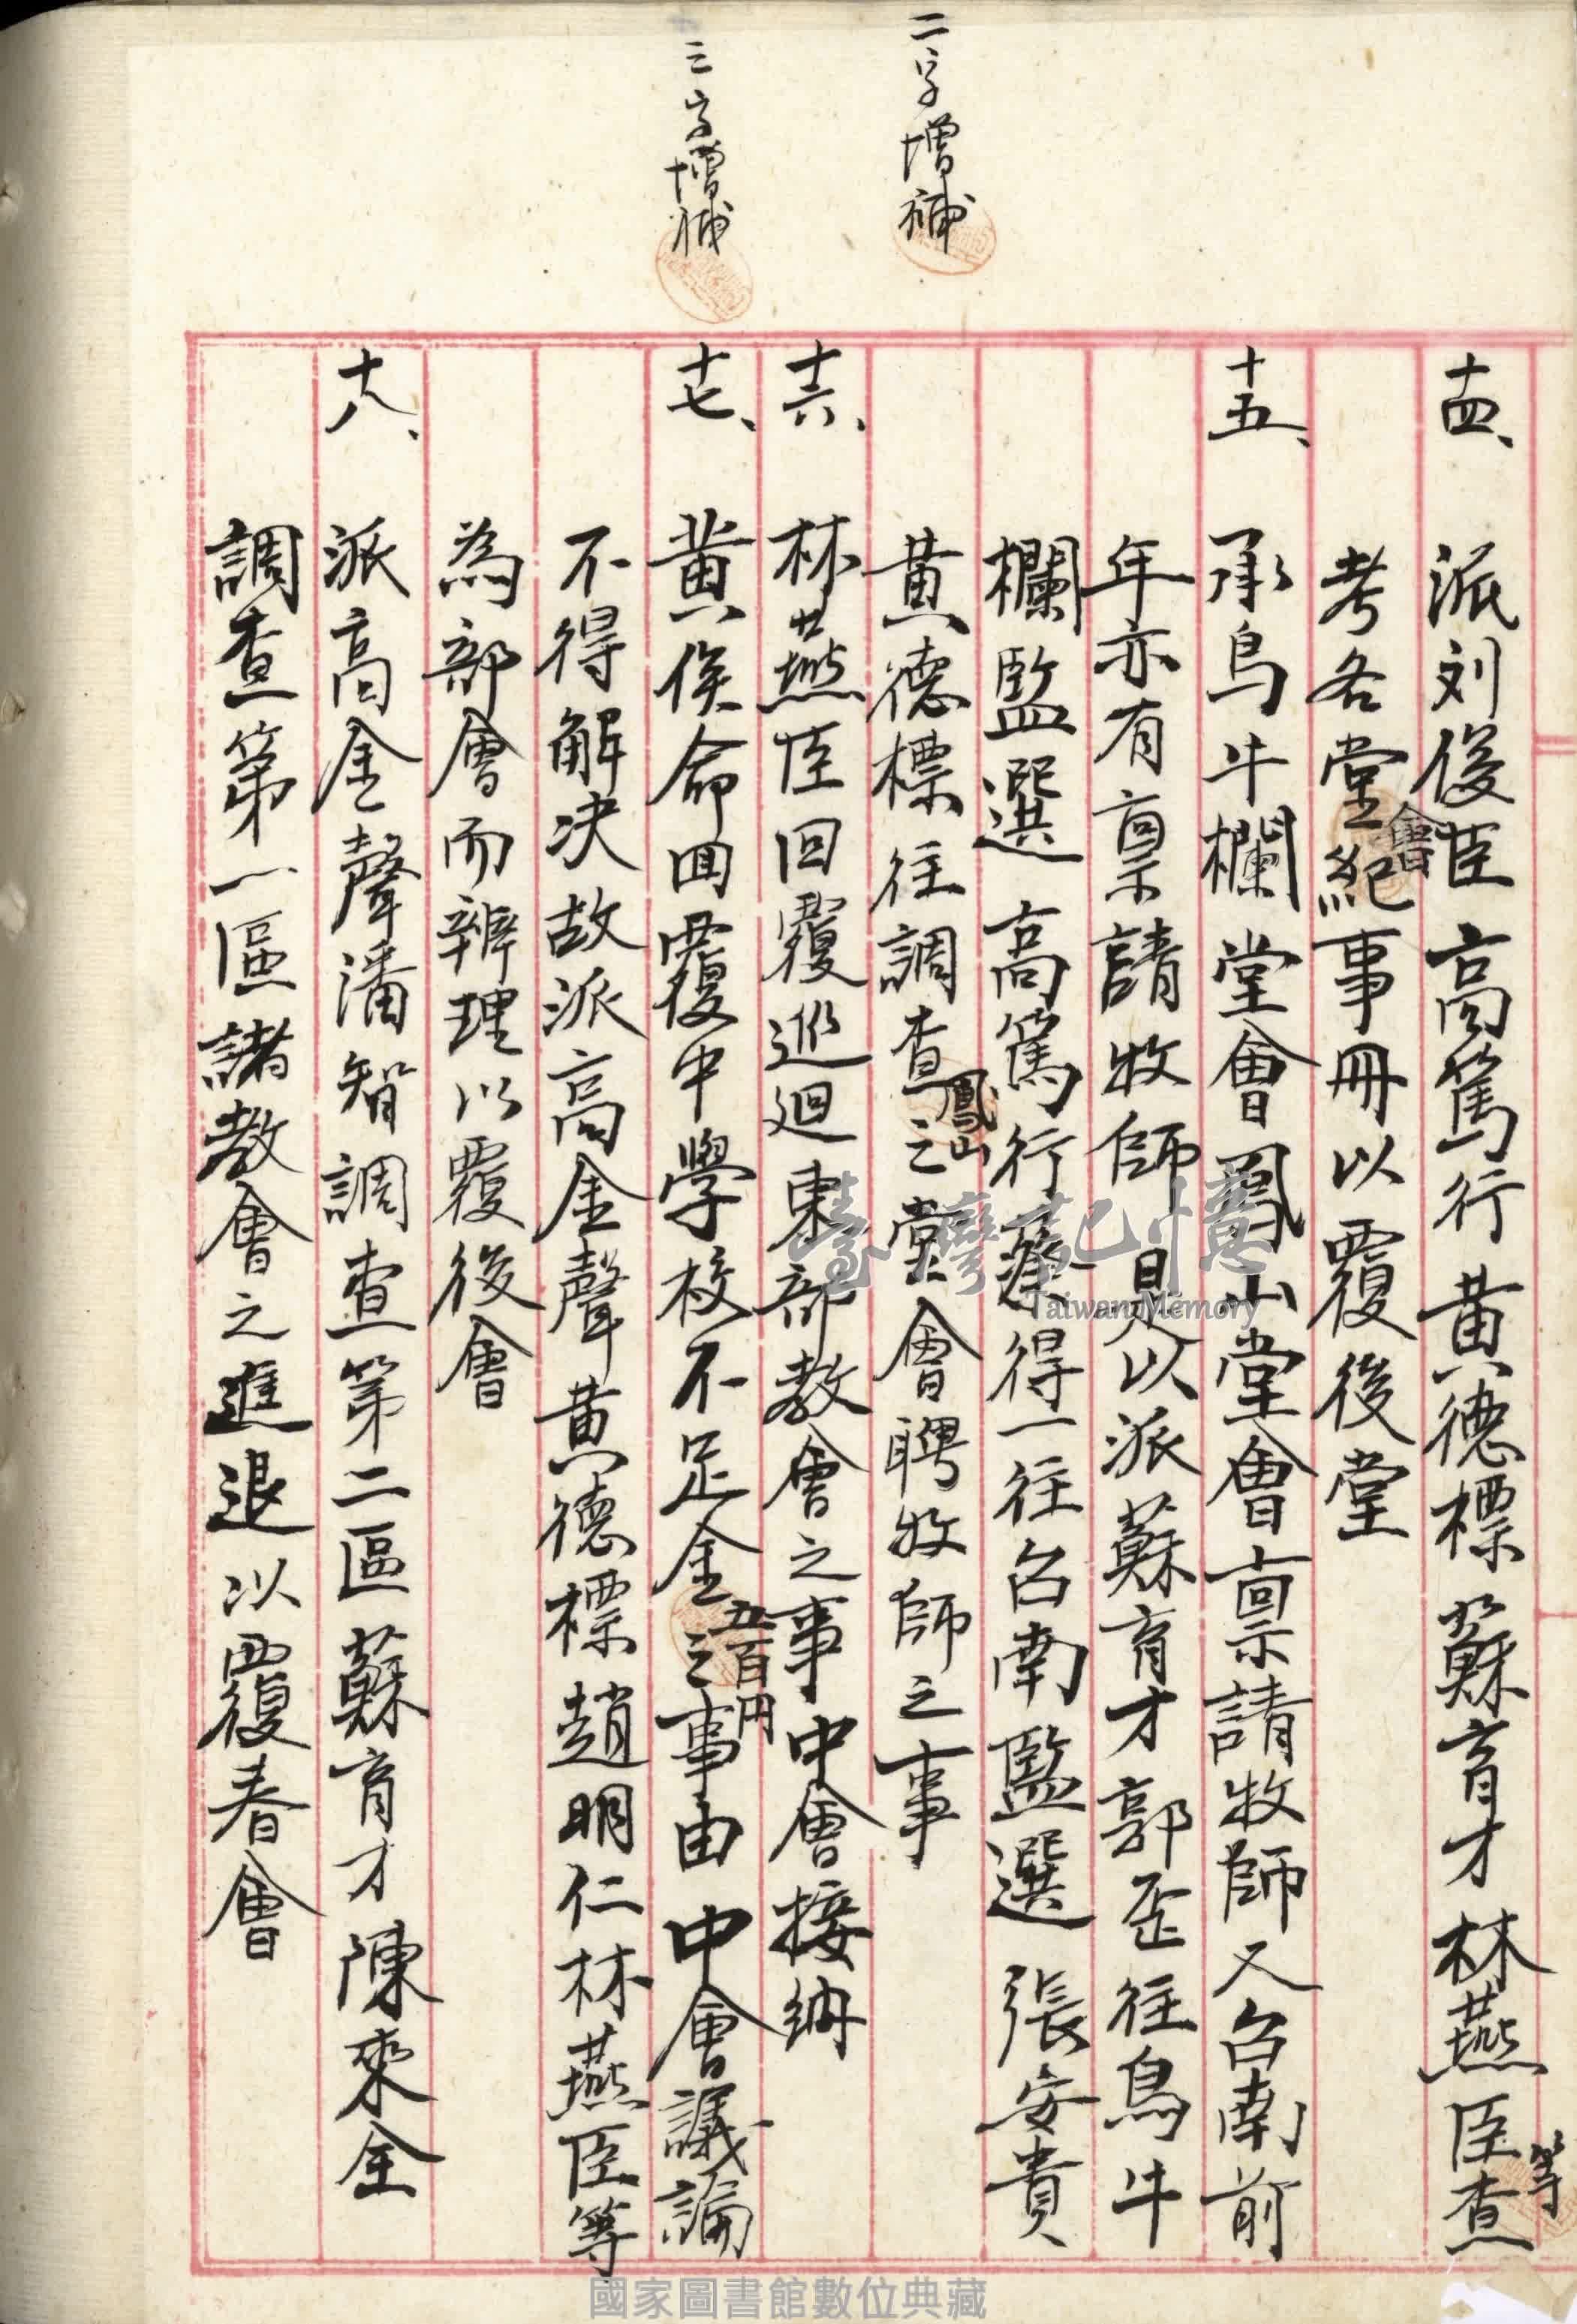 二字增補
三字增補
十四、派刘俊臣高篤行黄德標蘇育才林燕臣等查
考各堂會紀事冊以覆後堂
十五、承烏牛欄堂會鳳山堂會稟請牧師又台南前
年亦有稟請牧師是以派蘇育才郭歪往烏牛
欄監選高篤行蔡得一往台南監選張安貴
黄德標往調查鳳山之堂會聘牧師之事
十六、林燕臣回覆巡迴東部教會之事中會接納
十七、黄俟命回覆中學校不足金五百円之事由中會議論
不得解決故派高金聲黄德標趙明仁林燕臣等
為部會而辦理以覆後會
十八、派高金聲潘智調查第二區蘇育才陳來全
調查第一區諸教會之進退以覆春會
臺灣記憶
Taiwan Memory
國家圖書館數位典藏